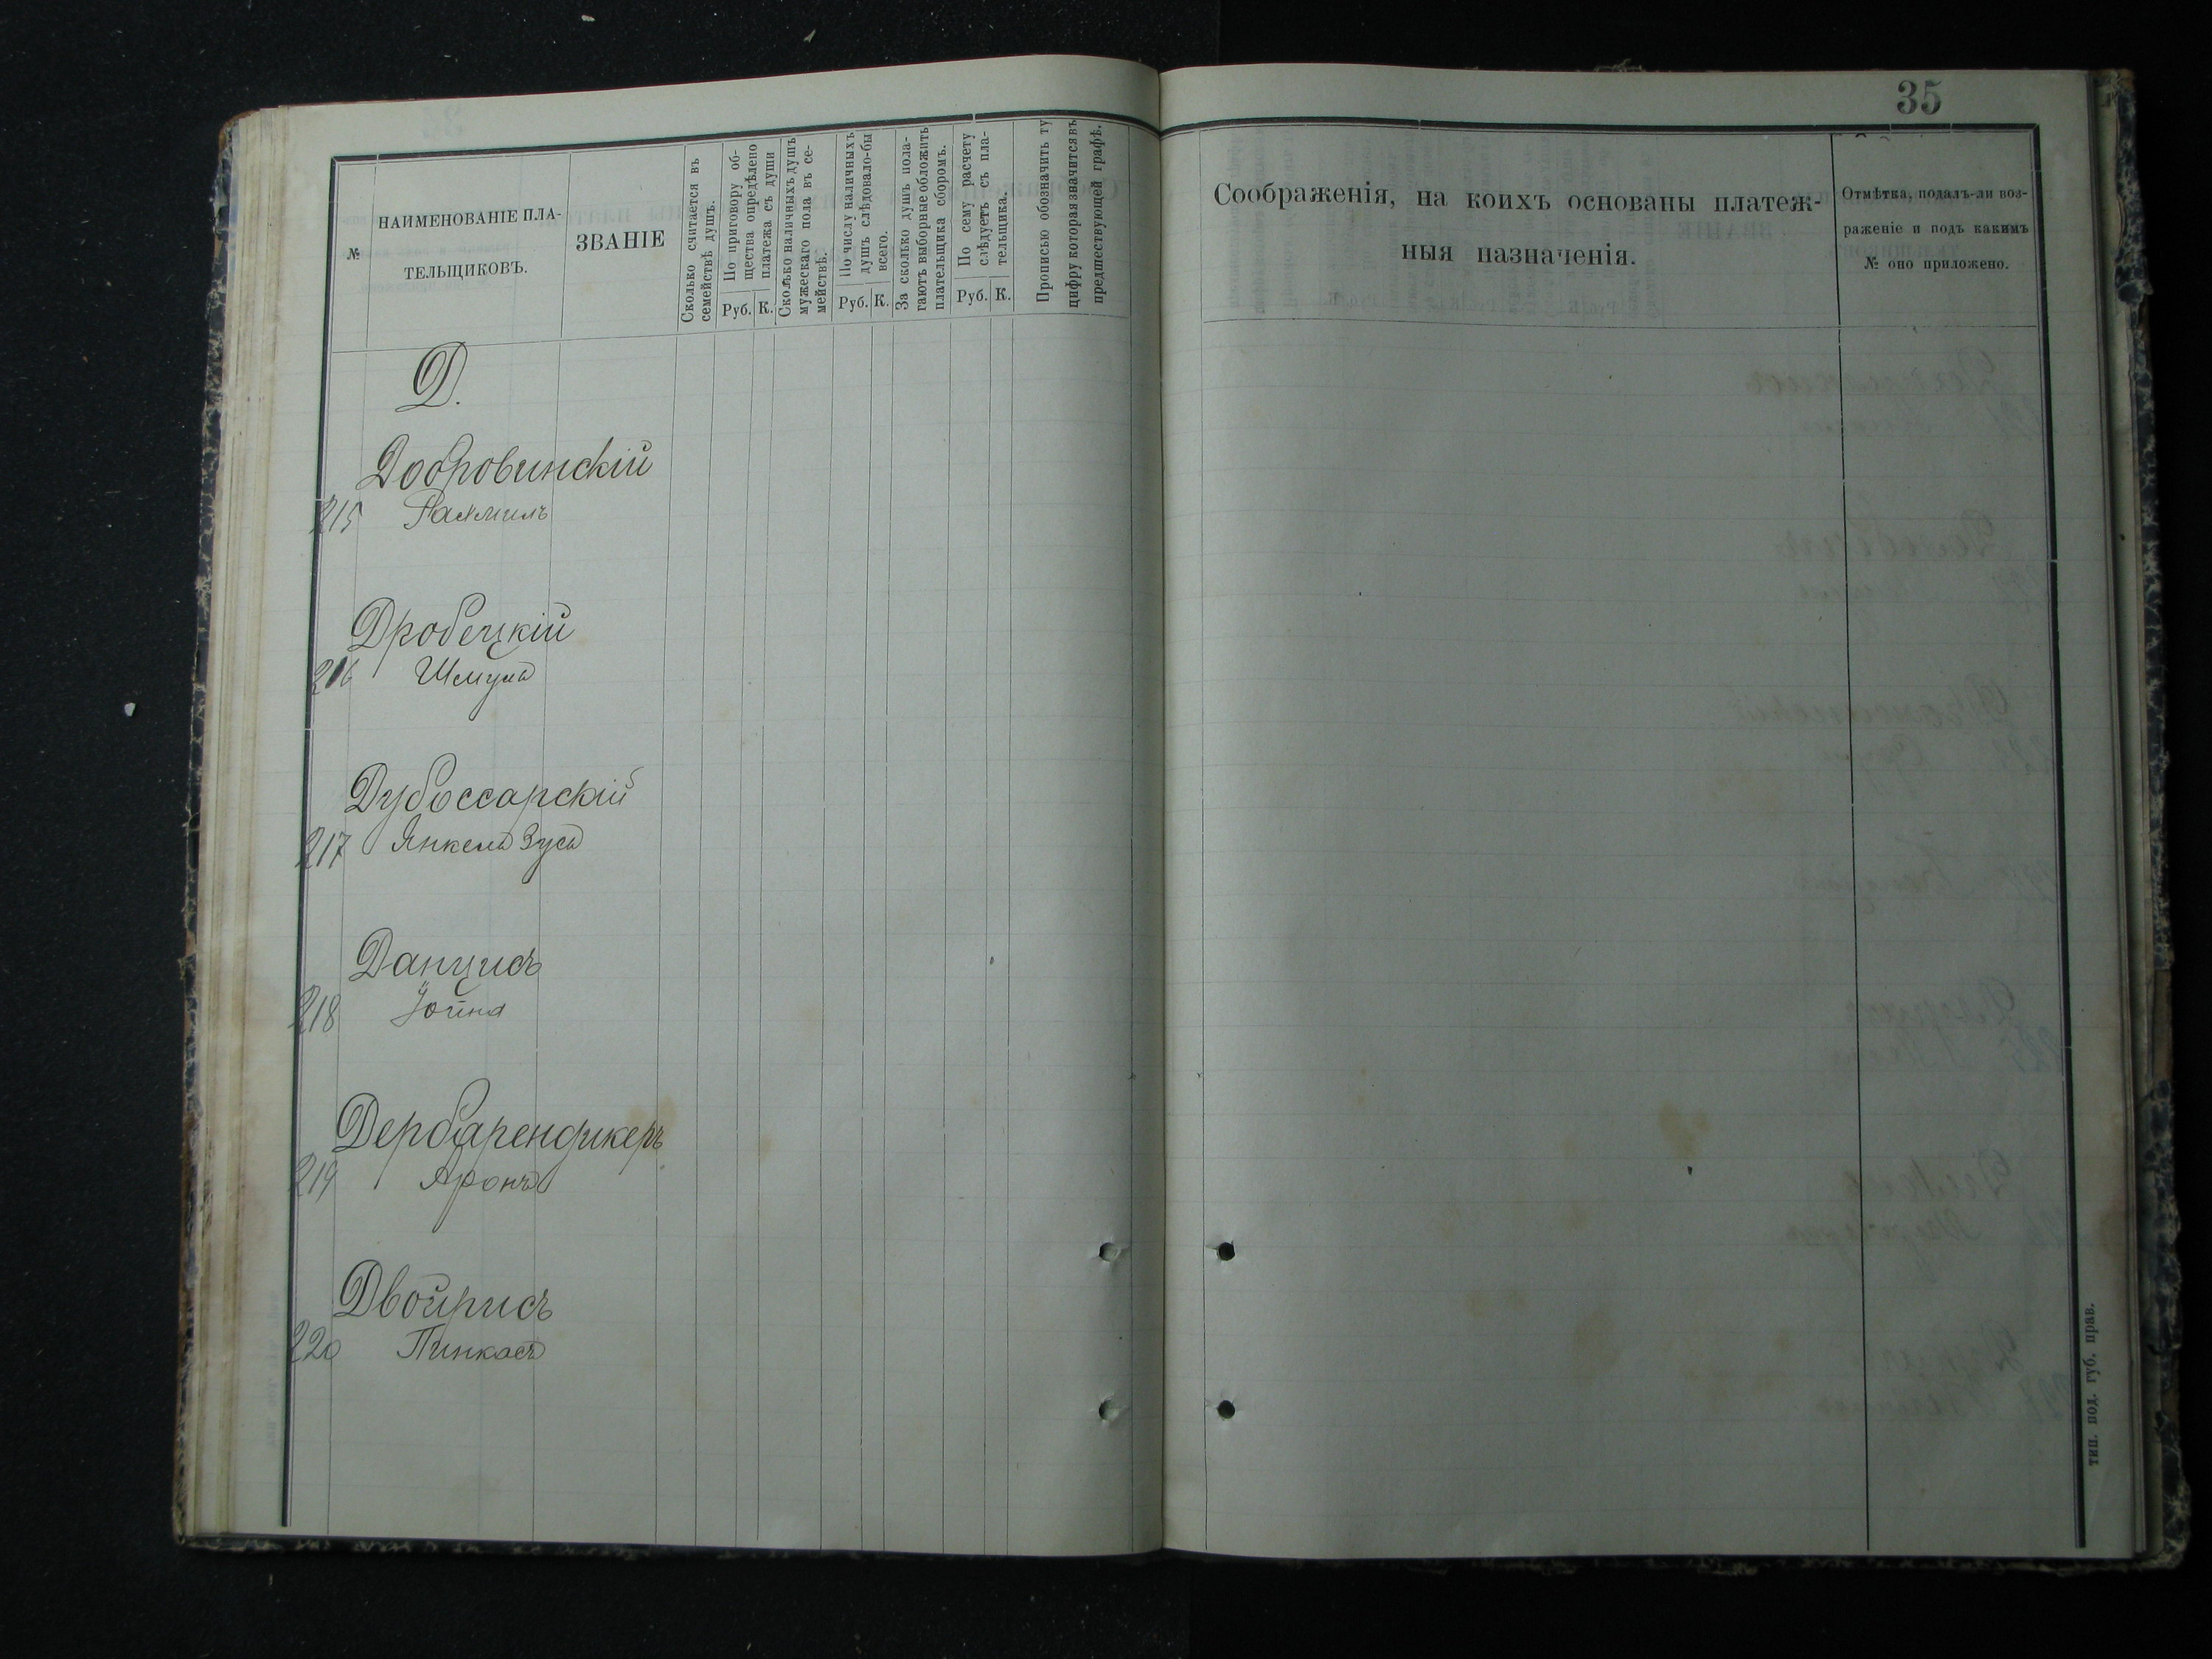 35
№
НАИМЕНОВАНІЕ ПЛА-
ТЕЛЬЩИКОВЪ.
ЗВАНІЕ
Сколько считается въ
семействѣ душъ.
По приговору об-
щества опредѣлено
платежа съ души
Руб. К.
Сколько наличныхъ душъ
мужескаго пола въ се-
мействѣ.
По числу наличныхъ
душъ слѣдовало-бы
всего.
Руб. К.
За сколько душъ пола-
гаютъ выборные обложить
плательщика сборомъ.
По сему расчету
слѣдуетъ съ пла-
тельщика.
Руб. К.
Прописью обозначить ту
цифру которая значится въ
предшествующей графѣ.
Соображенія, на коихъ основаны платеж-
ныя назначенія.
Отмѣтка, подалъ-ли воз-
раженіе и подъ какимъ
№ оно приложено.
Д.
Добровинскій
215 Рахмиль
Дробецкій
216 Шмуль
Дубоссарскій
217 Янкель Зусь
Данцисъ
218 Іойна
Дербаремдикеръ
219 Аронъ
Двойрисъ
220 Пинкасъ
тип. под. губ. прав.